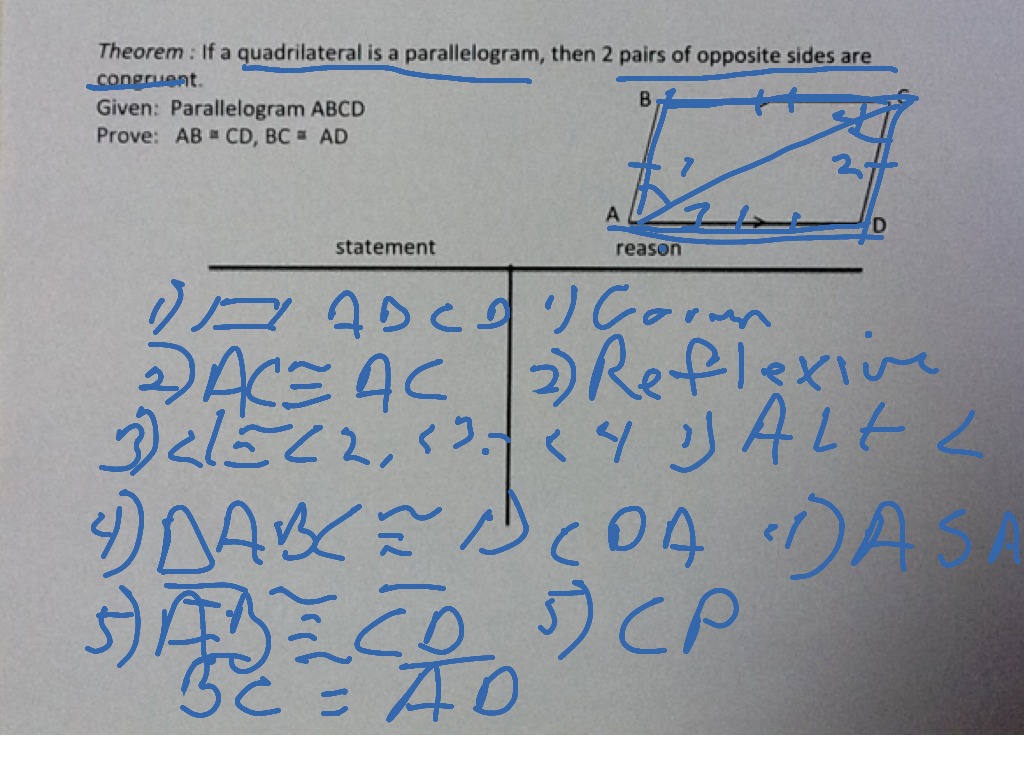 Theorem : If a quadrilateral is a parallelogram, then 2 pairs of opposite sides are
congruent.
Given: Parallelogram ABCD
Prove: AB ≅ CD, BC ≅ AD
B C
1 2 4
A 3 D
statement reason
1) ▱ ABCD 1) Given
2) AC ≅ AC 2) Reflexive
3) <1 ≅ <2, <3 ≅ <4 3) Alt <
4) △ABC ≅ △CDA 4) ASA
5) AB ≅ CD 5) CP
BC ≅ AD